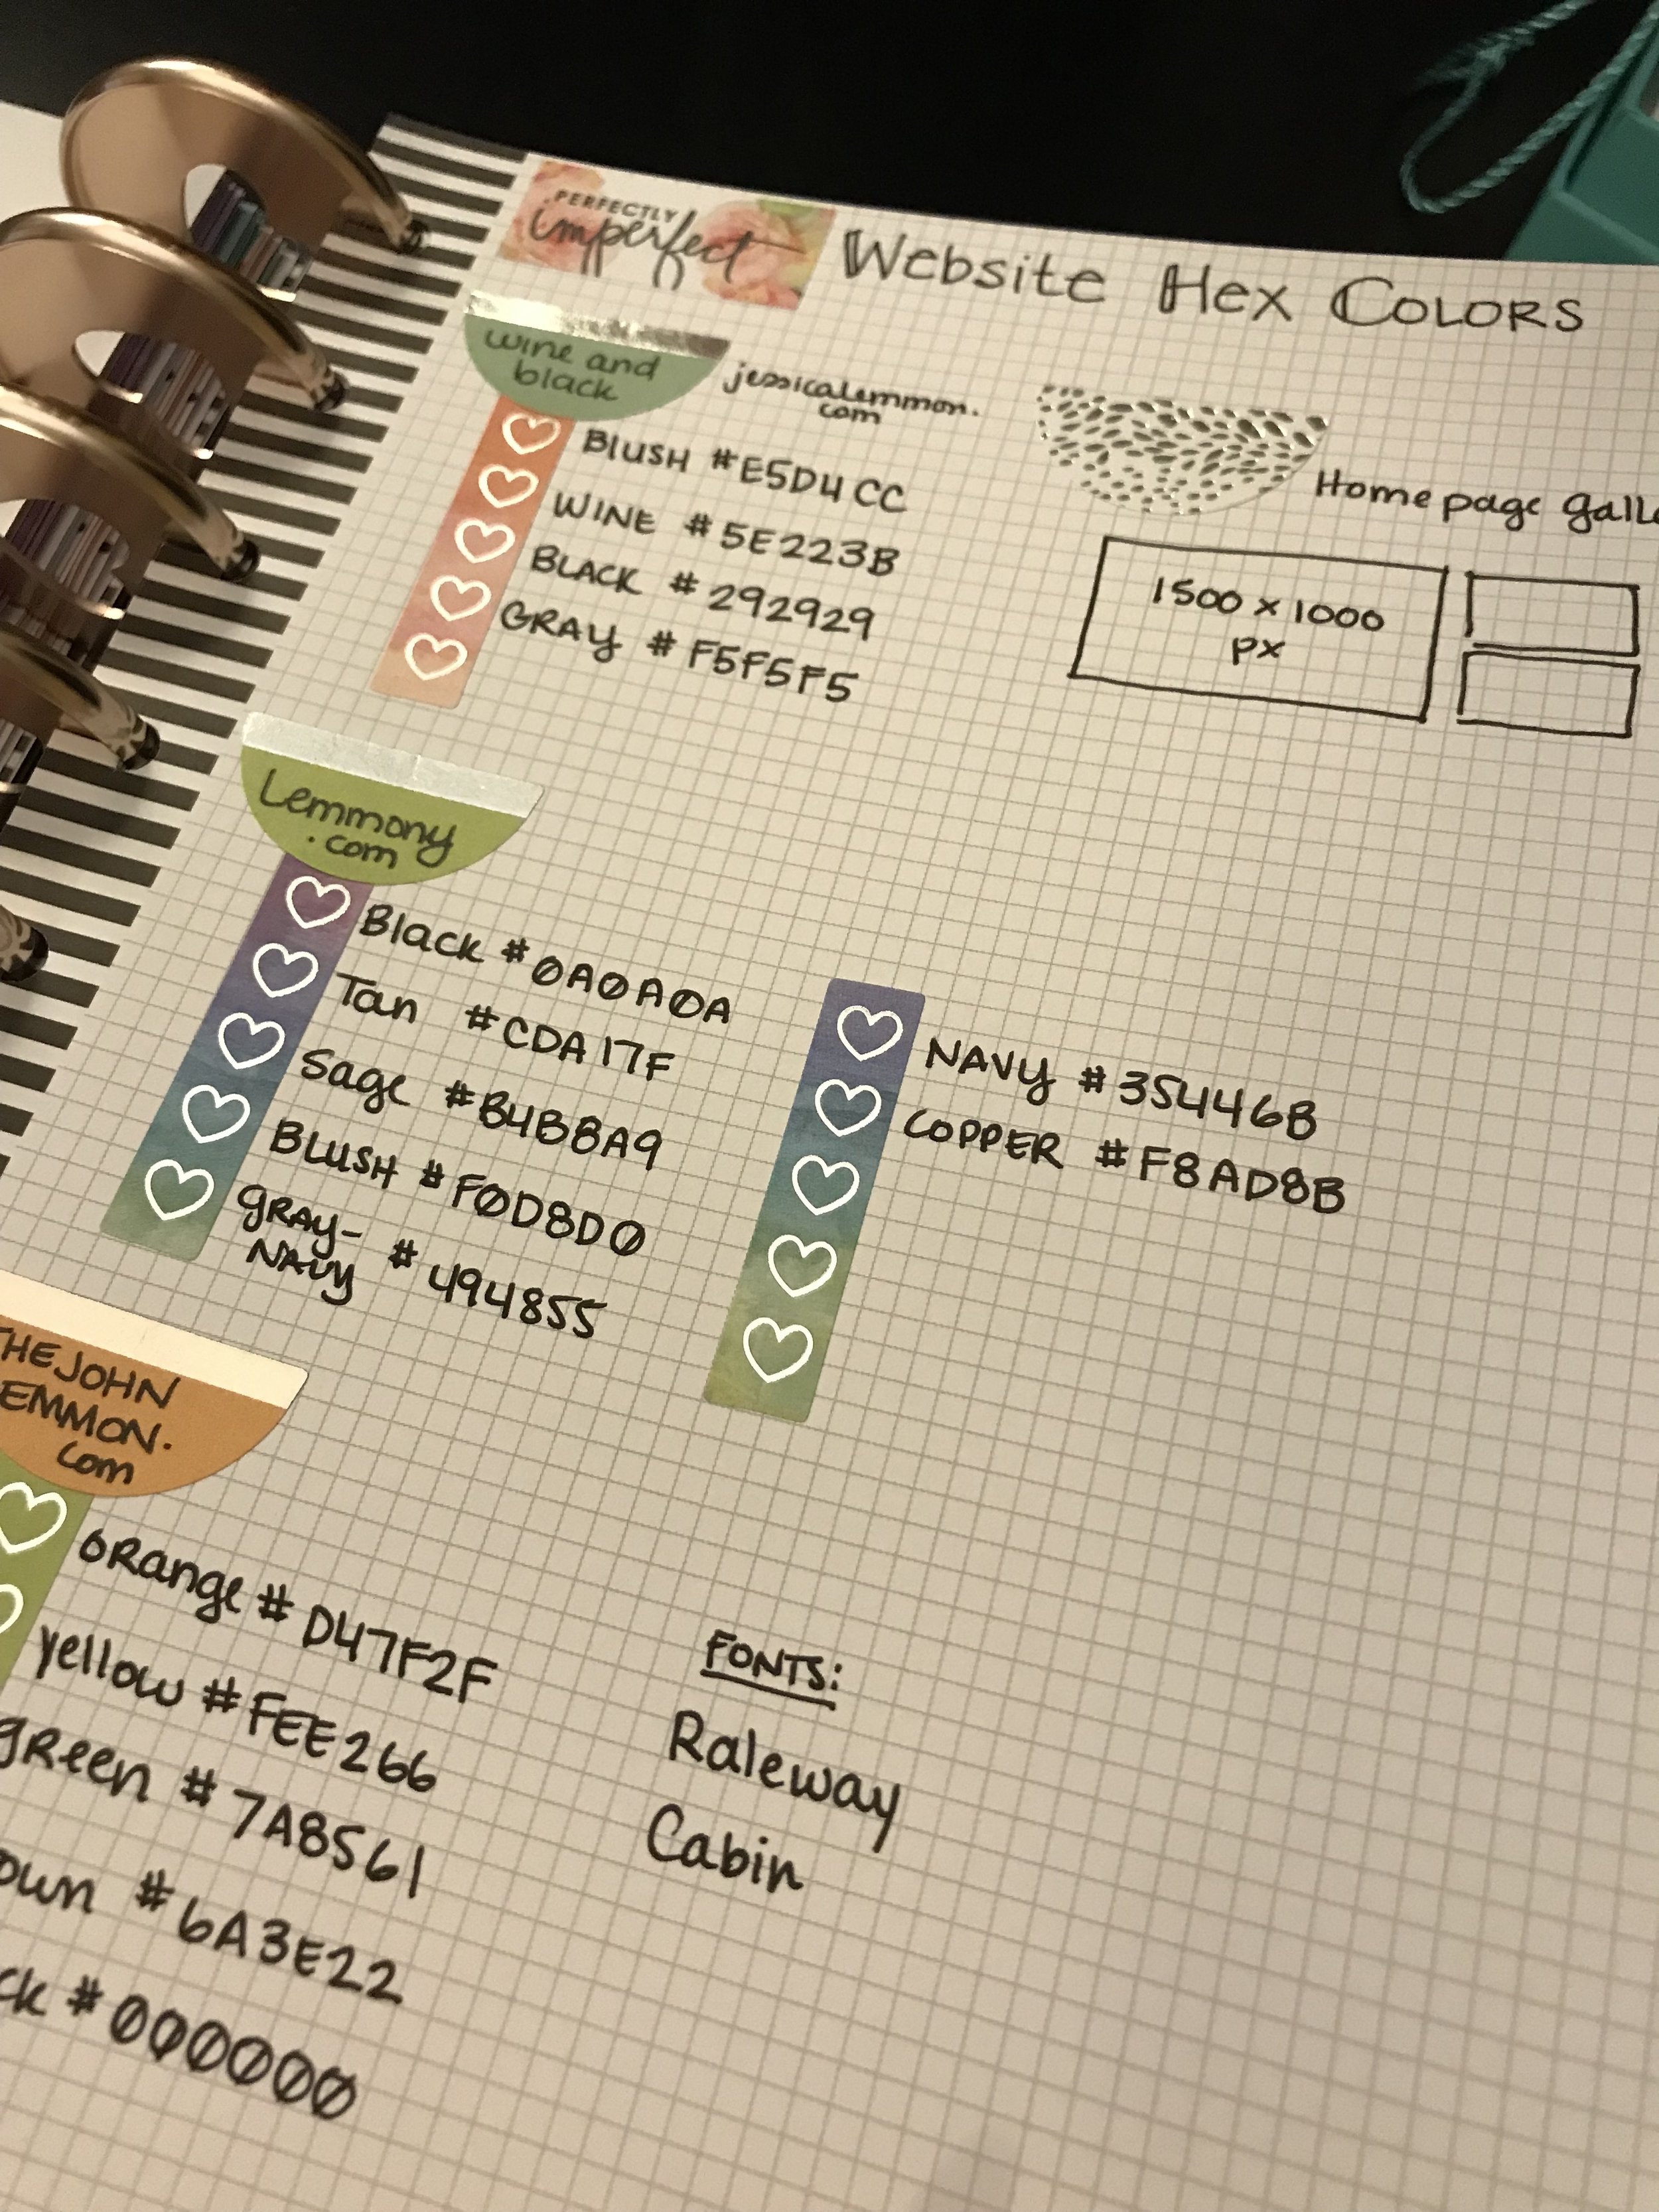 PERFECTLY
imperfect
Website Hex COLORS
wine and
black
jessicalemmon.
com
BLUSH #E5D4CC
WINE #5E223B
BLACK #292929
GRAY #F5F5F5
Home page
1500 x 1000
px
Lemmony
.com
Black #0A0A0A
Tan #CDA17F
Sage #B4B8A9
BLUSH #F0D8D0
GRAY-
NAVY #494855
NAVY #35446B
COPPER #F8AD8B
HE JOHN
EMMON.
com
orange #D47F2F
yellow #FEE266
green #7A8561
own #6A3E22
ck #000000
FONTS:
Raleway
Cabin